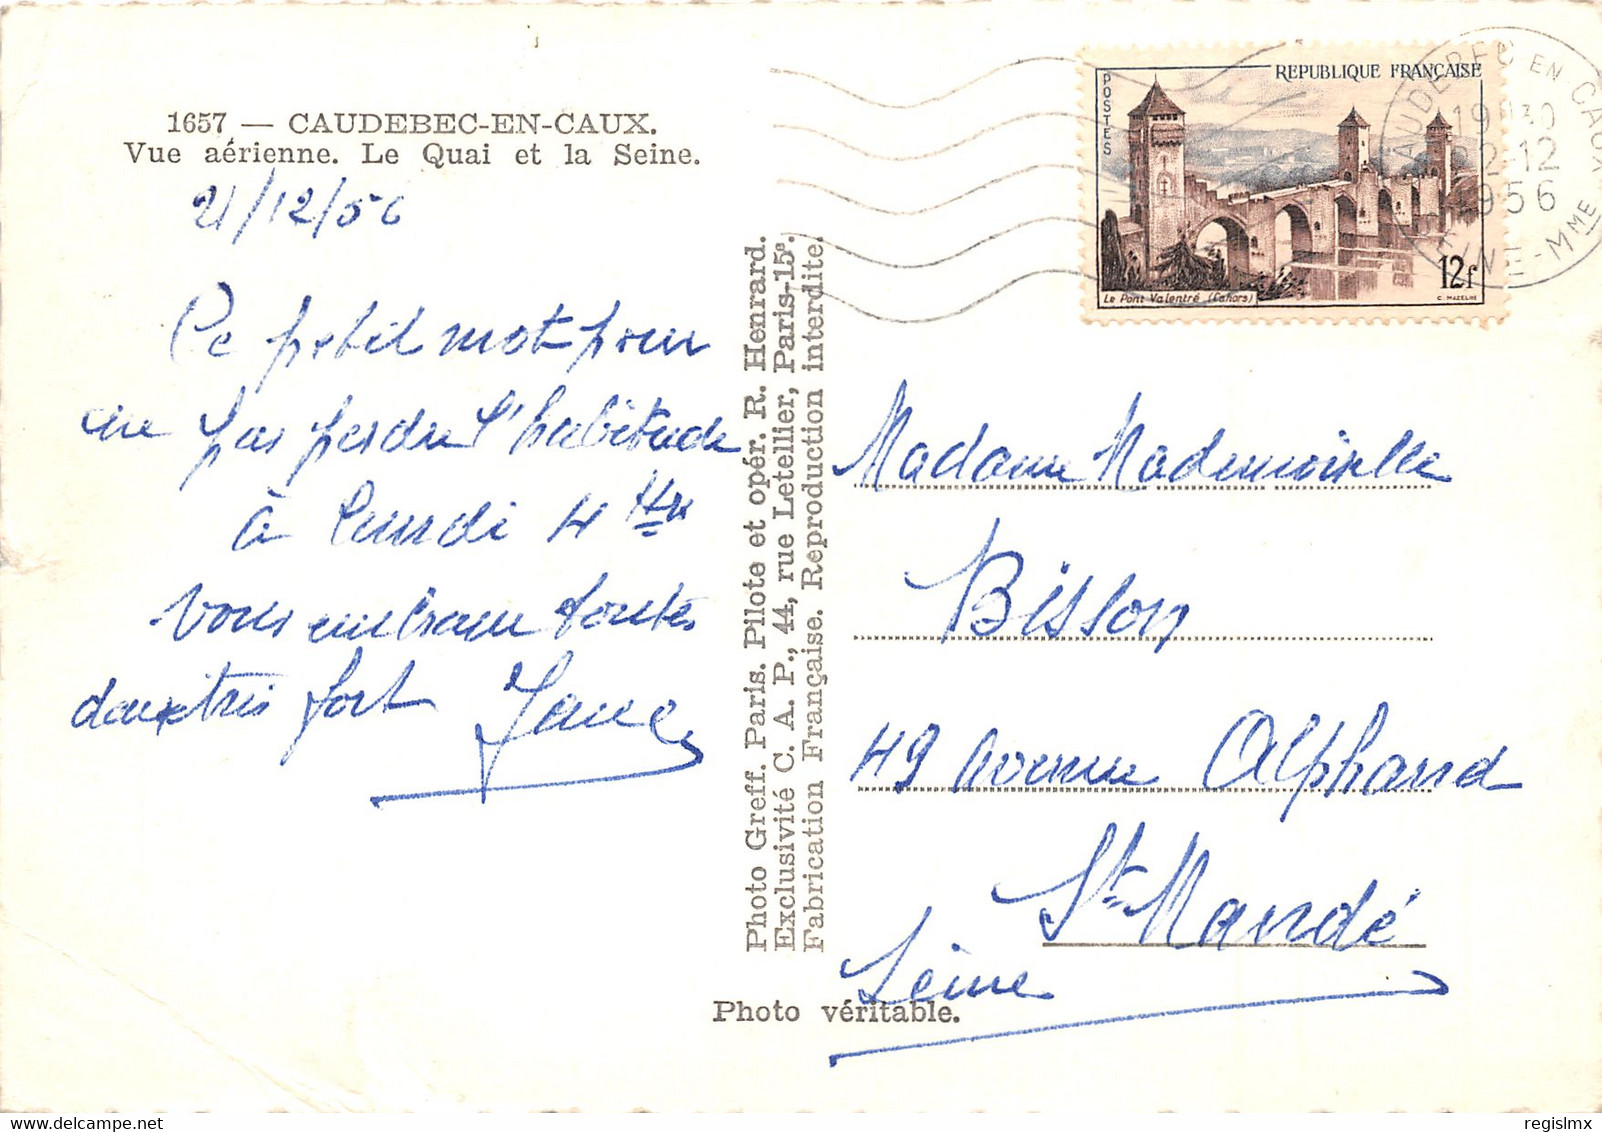 1657 — CAUDEBEC-EN-CAUX.
Vue aérienne. Le Quai et la Seine.
21/12/56
Ce petit mot pour
ne pas perdre l'habitude
à Lundi 4
vous embrasse toutes
deux très fort
Photo Greff. Paris. Pilote et opér. R. Henrard.
Exclusivité C. A. P., 44, rue Letellier, Paris-15e.
Fabrication Française. Reproduction interdite.
Photo véritable.
POSTES
REPUBLIQUE FRANÇAISE
Le Pont Valentré (Cahors)
12f
C. MAZELIN
CAUDEBEC EN CAUX
19H30
22-12
1956
SEINE-INF-MME
Madame Mademoiselle
Bisson
49 Avenue Alphand
St Mandé
Seine
regislmx